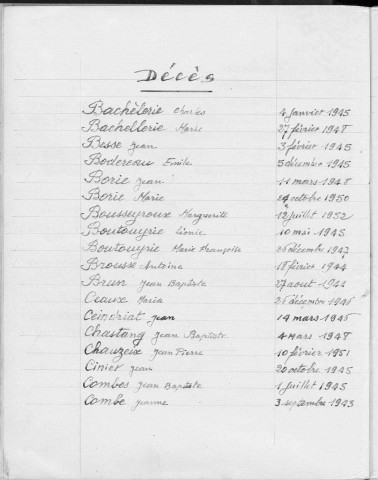 Décès
Bachèlerie Charles 4 janvier 1945
Bachellerie Marie 27 février 1948
Besse Jean 3 février 1945
Bodereau Emile 5 décembre 1945
Borie Jean 11 mars 1948
Borie Marie octobre 1950
Bousseyroux Marguerite 12 juillet 1952
Boutouyrie Léonie 10 mai 1945
Boutouyrie Marie Françoise décembre 1947
Brousse Antoine 18 février 1944
Brun Jean Baptiste 27 août 1944
Ceaux Maria décembre 1946
Ceindriat Jean 14 mars 1946
Chastang Jean Baptiste 4 mars 1948
Chauzeix Jean Pierre 10 février 1951
Cinier Jean 20 octobre 1945
Combes Jean Baptiste 1 juillet 1945
Combe Jeanne 3 septembre 1943